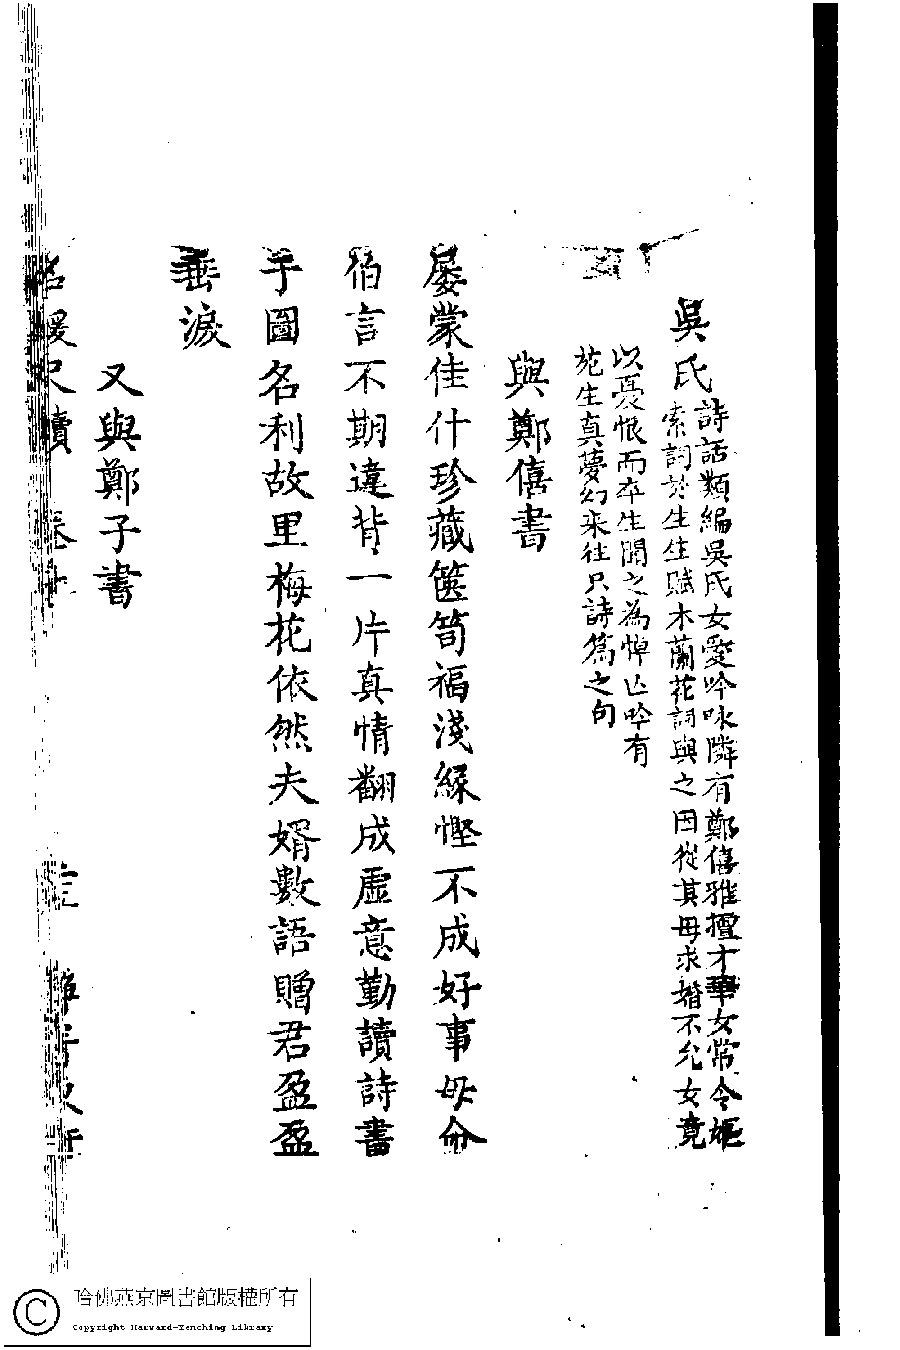 吳氏
詩話類編吳氏女愛吟咏隣有鄭僖雅擅才華女常令嫗
索詞於生生賦木蘭花詞與之因從其母求婚不允女竟
以憂恨而卒生聞之為悼亡吟有
死生真夢幻來往只詩篇之句
與鄭僖書
屡蒙佳什珍藏篋笥福淺緣慳不成好事母命
伯言不期違背一片真情翻成虛意勤讀詩書
手圖名利故里梅花依然夫婿數語贈君盈盈
垂淚
又與鄭子書
名媛尺牘 卷
哈佛燕京圖書館版權所有
Copyright Harvard-Yenching Library